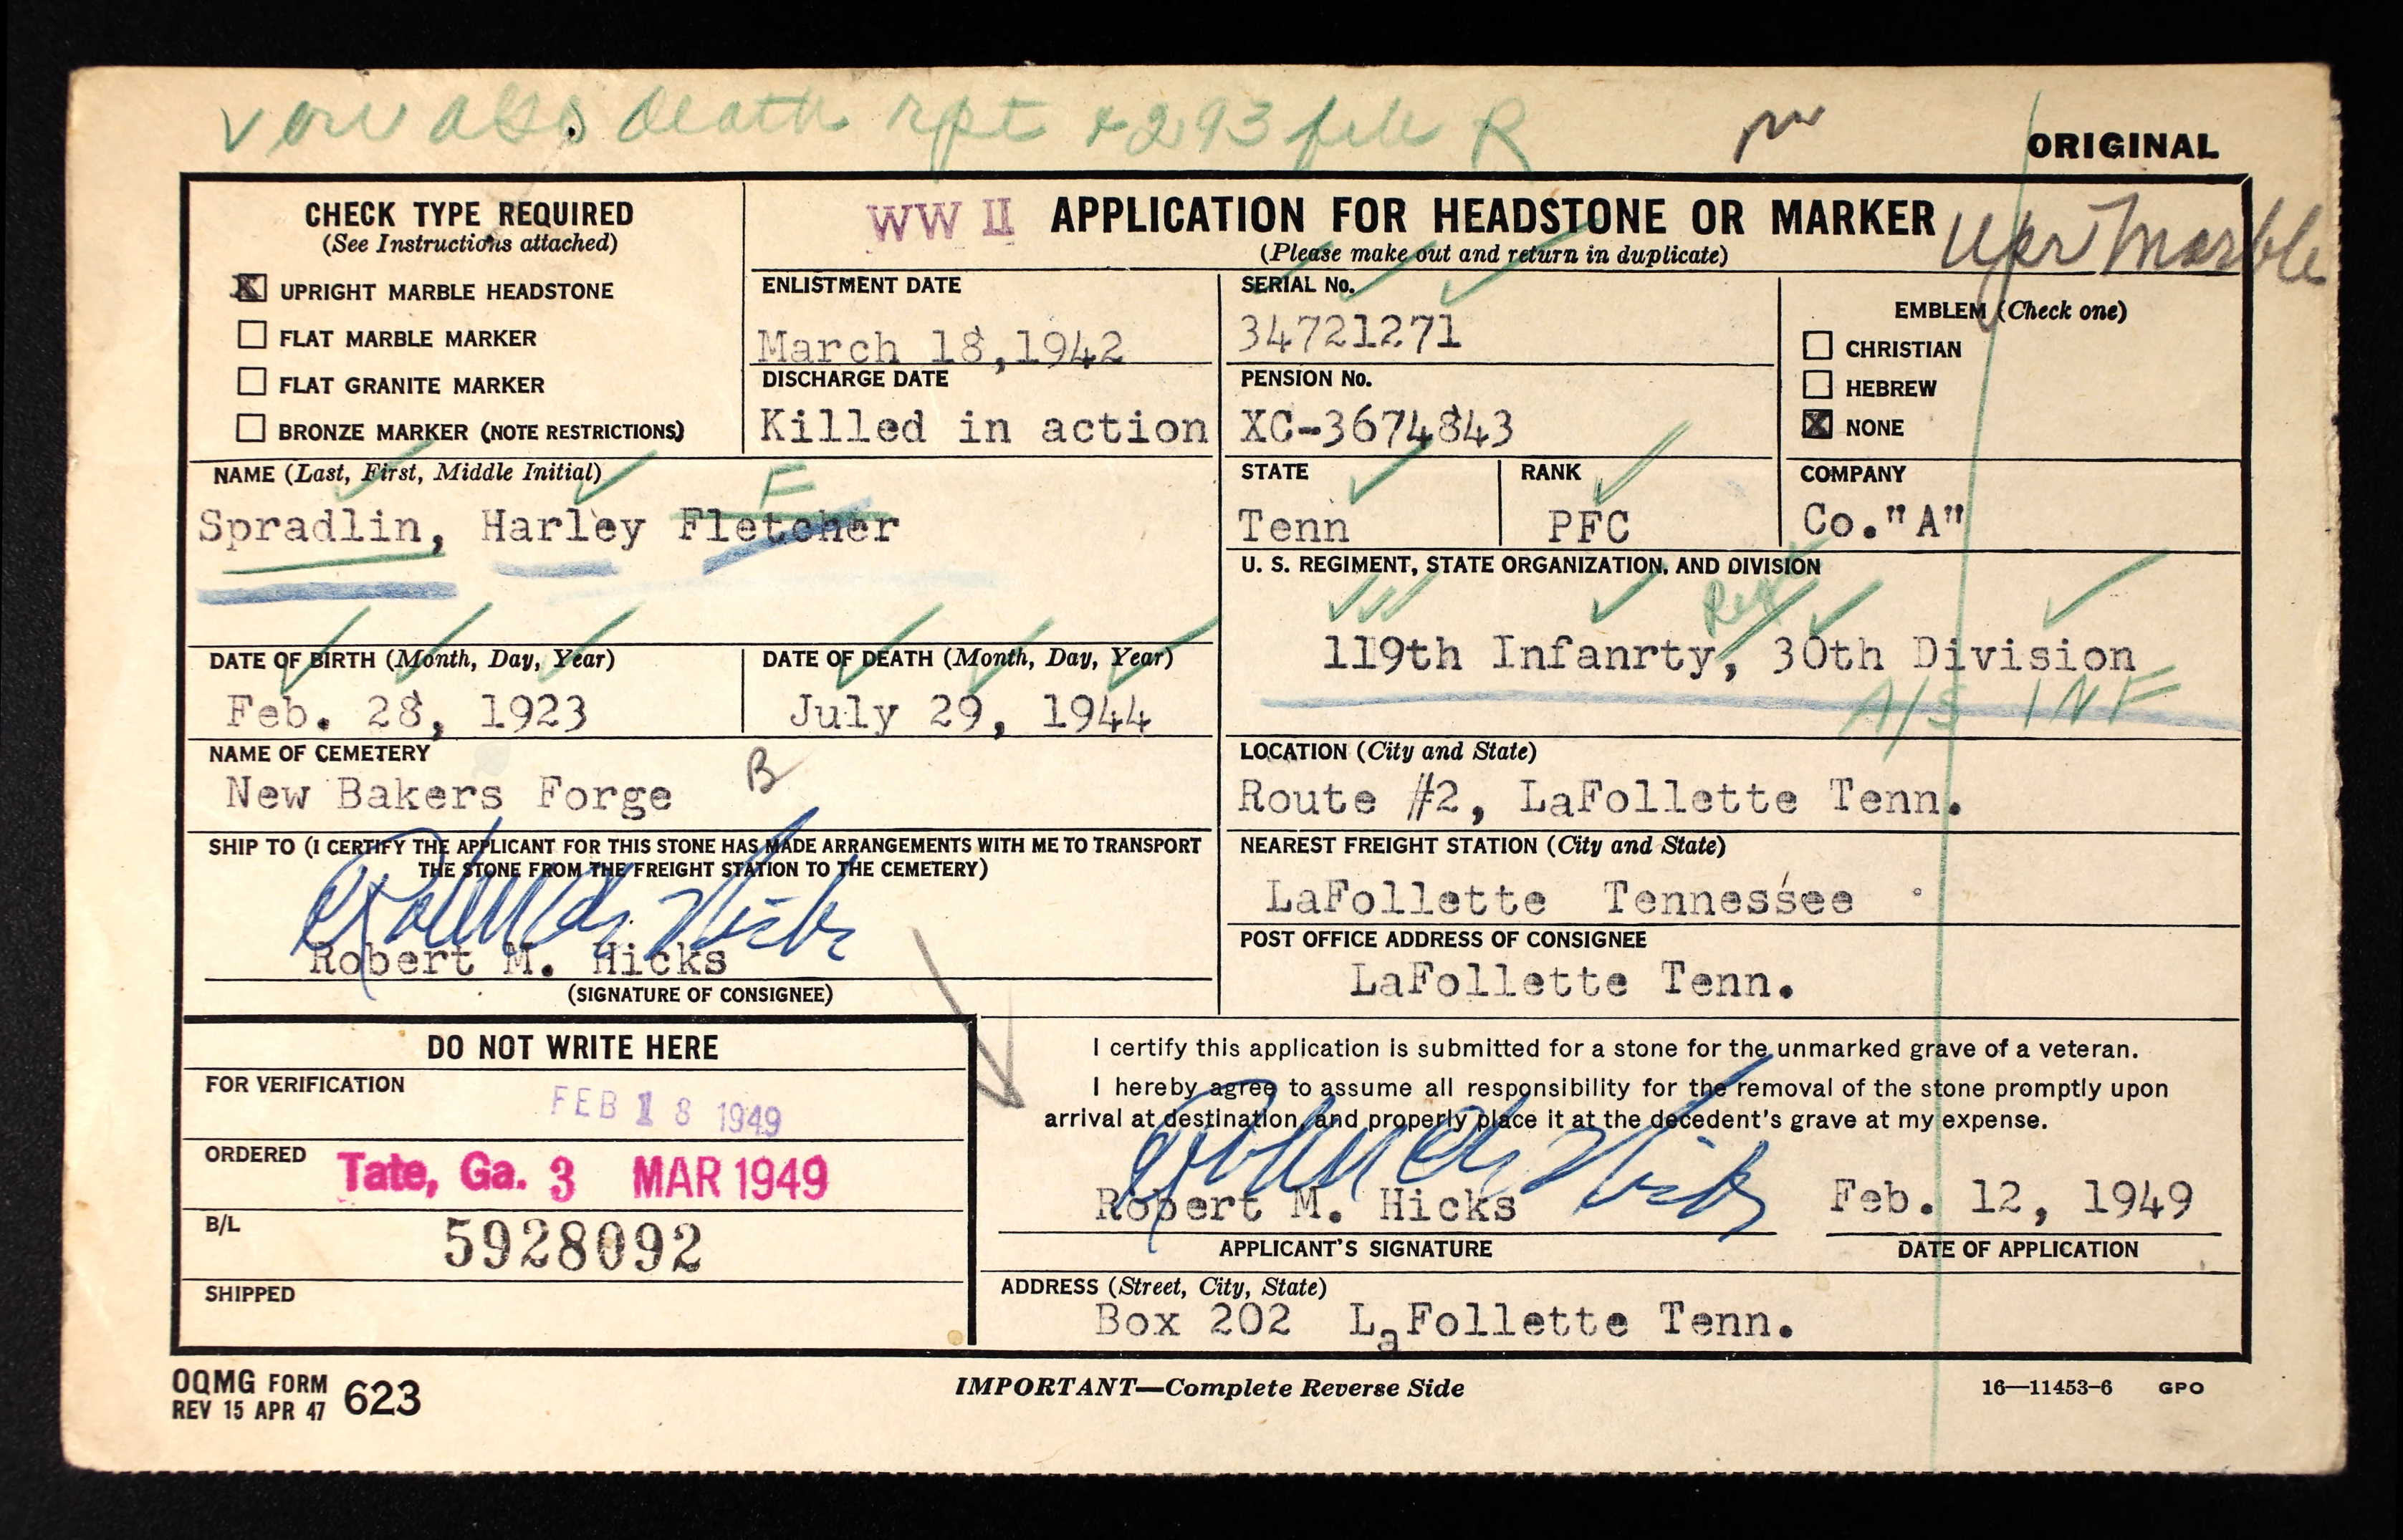 death rpt + 293 file R
ORIGINAL
CHECK TYPE REQUIRED
(See Instructions attached)
X UPRIGHT MARBLE HEADSTONE
FLAT MARBLE MARKER
FLAT GRANITE MARKER
BRONZE MARKER (NOTE RESTRICTIONS)
WW II APPLICATION FOR HEADSTONE OR MARKER
(Please make out and return in duplicate)
Upr Marble
ENLISTMENT DATE
March 18,1942
DISCHARGE DATE
Killed in action
SERIAL No.
34721271
PENSION No.
XC-3674843
EMBLEM (Check one)
CHRISTIAN
HEBREW
X NONE
NAME (Last, First, Middle Initial)
F
Spradlin, Harley Fletcher
STATE
Tenn
RANK
PFC
COMPANY
Co."A"
U. S. REGIMENT, STATE ORGANIZATION, AND DIVISION
119th Infanrty, 30th Division
A/S INF
DATE OF BIRTH (Month, Day, Year)
Feb. 28, 1923
DATE OF DEATH (Month, Day, Year)
July 29, 1944
NAME OF CEMETERY
New Bakers Forge
B
LOCATION (City and State)
Route #2, LaFollette Tenn.
SHIP TO (I CERTIFY THE APPLICANT FOR THIS STONE HAS MADE ARRANGEMENTS WITH ME TO TRANSPORT
THE STONE FROM THE FREIGHT STATION TO THE CEMETERY)
Robert M. Hicks
(SIGNATURE OF CONSIGNEE)
NEAREST FREIGHT STATION (City and State)
LaFollette Tennessee
POST OFFICE ADDRESS OF CONSIGNEE
LaFollette Tenn.
DO NOT WRITE HERE
FOR VERIFICATION
FEB 18 1949
ORDERED
Tate, Ga. 3 MAR 1949
B/L
5928092
SHIPPED
I certify this application is submitted for a stone for the unmarked grave of a veteran.
I hereby agree to assume all responsibility for the removal of the stone promptly upon
arrival at destination, and properly place it at the decedent's grave at my expense.
Robert M. Hicks
APPLICANT'S SIGNATURE
Feb. 12, 1949
DATE OF APPLICATION
ADDRESS (Street, City, State)
Box 202 LaFollette Tenn.
OQMG FORM
REV 15 APR 47
623
IMPORTANT—Complete Reverse Side
16—11453-6 GPO